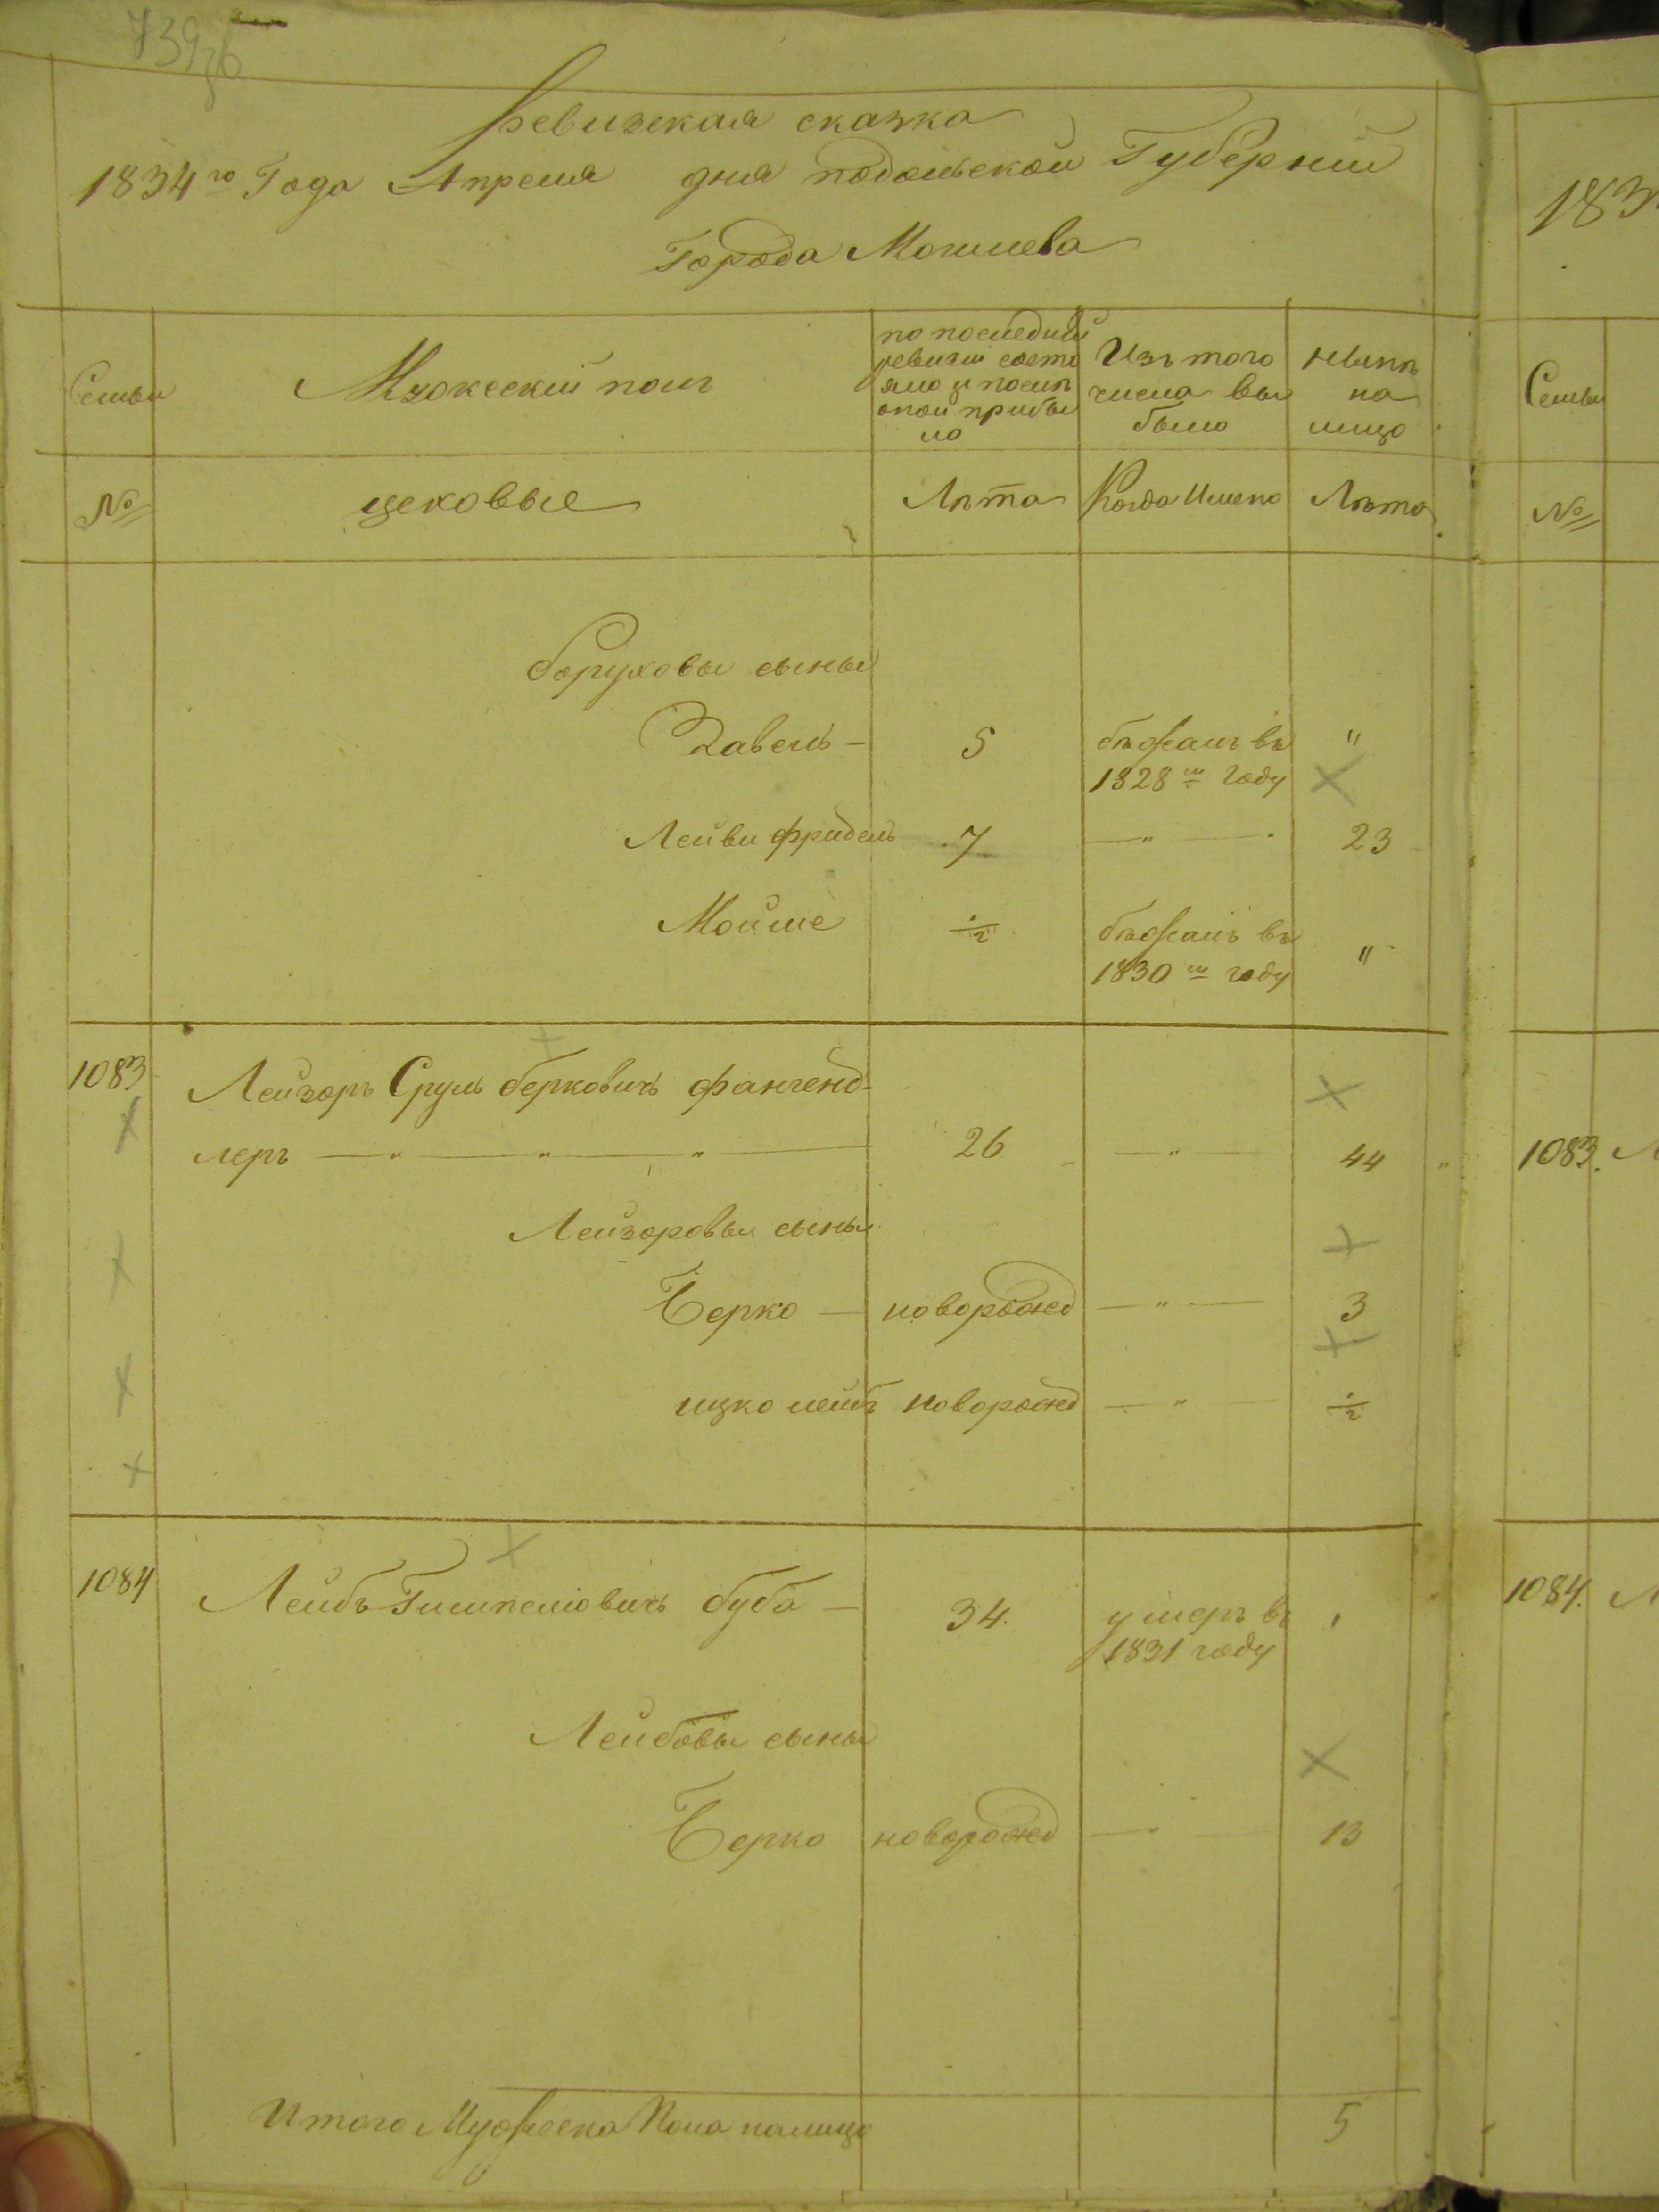 739 зв
Ревизская сказка
1834го Года Апреля дня подольской Губернии
Города Могилева
Семьи
Мужеский полъ
по последней
ревизии состо
яло и послѣ
оной прибы
ло
Изъ того
числа вы
было
нынѣ
на
лицо
№
цеховые
Лѣта
Когда Имено
Лѣта
боруховы сыны
Завель — 5 бѣжалъ въ "
1828м Году
Лейви фридель 7 — " — 23
Мойше ½ бѣжалъ въ "
1830м году
1083 Лейзоръ Сруль берковичъ фангенд-
леръ — " — " — " — 26 — " — 44
Лейзоровы сыны
Берко — новорожд — " — 3
ицко лейб новорожд — " — ½
1084 Лейбъ Гимпелiовичъ буба — 34. умеръ въ "
1831 году
Лейбовы сыны
Берко новорожд — " — 13
Итого Мужеска Пола налицо 5
183
Семьи
№
1083. Л
1084. Л